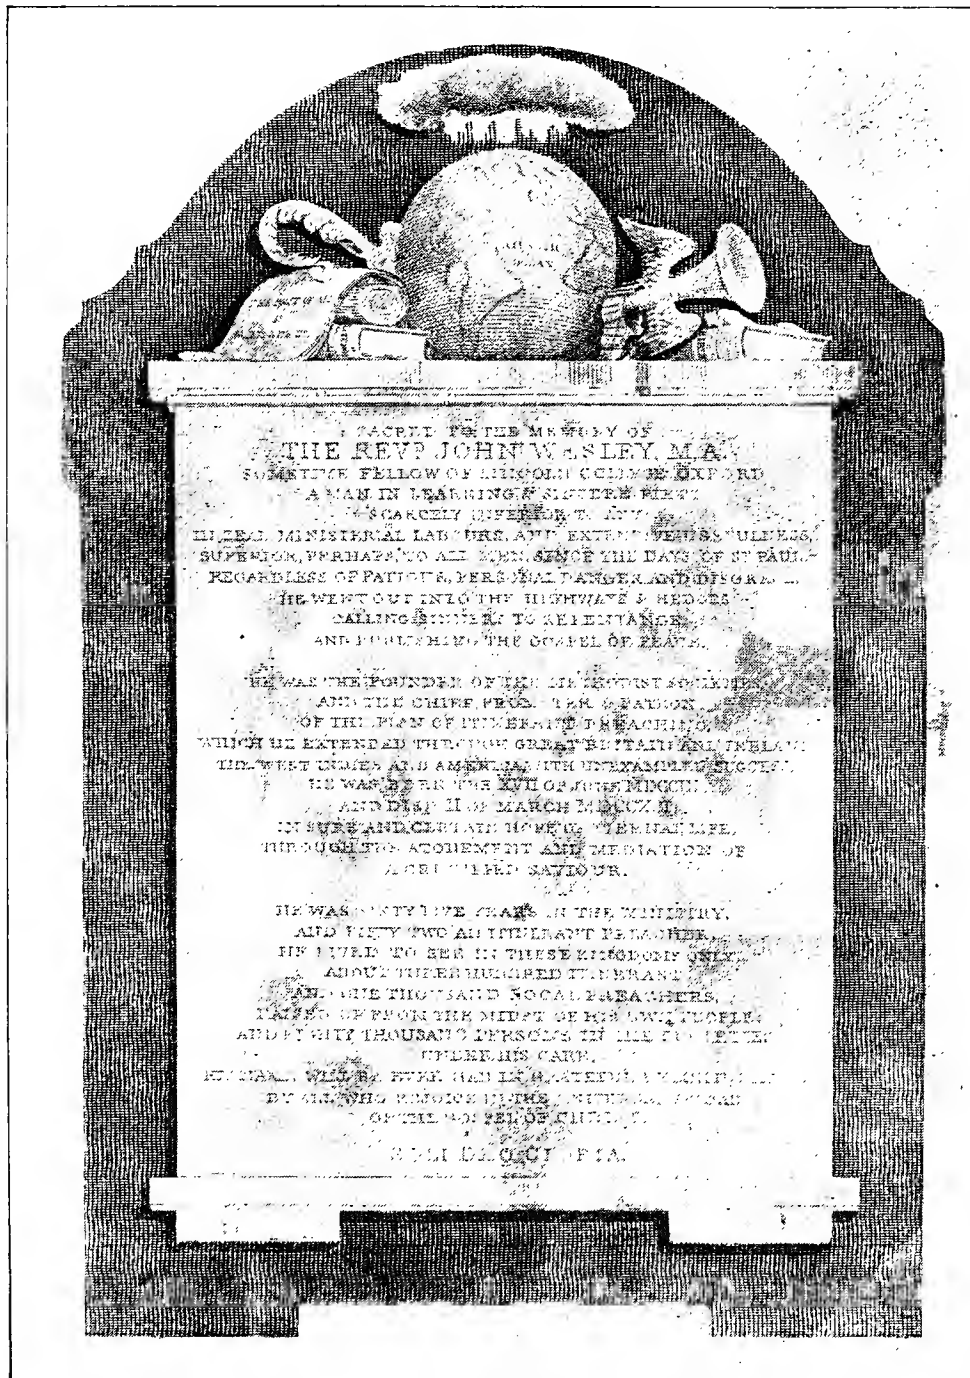 SACRED TO THE MEMORY OF
THE REVD. JOHN WESLEY, M.A.
SOMETIME FELLOW OF LINCOLN COLLEGE OXFORD
A MAN IN LEARNING & SINCERE PIETY
SCARCELY INFERIOR TO ANY
IN ZEAL MINISTERIAL LABOURS, AND EXTENSIVE USEFULNESS,
SUPERIOR, PERHAPS, TO ALL MEN, SINCE THE DAYS OF ST PAUL
REGARDLESS OF FATIGUE, PERSONAL DANGER, AND DISGRACE,
HE WENT OUT INTO THE HIGHWAYS & HEDGES
CALLING SINNERS TO REPENTANCE,
AND PUBLISHING THE GOSPEL OF PEACE.
HE WAS THE FOUNDER OF THE METHODIST SOCIETIES
AND THE CHIEF PROMOTER & PATRON
OF THE PLAN OF ITINERANT PREACHING,
WHICH HE EXTENDED THROUGH GREAT BRITAIN AND IRELAND
THE WEST INDIES AND AMERICA WITH UNEXAMPLED SUCCESS
HE WAS BORN THE XVII OF JUNE
AND DIED II OF MARCH
IN SURE AND CERTAIN HOPE OF ETERNAL LIFE,
THROUGH THE ATONEMENT AND MEDIATION OF
A CRUCIFIED SAVIOUR.
HE WAS SIXTY FIVE YEARS IN THE MINISTRY,
AND FIFTY TWO AN ITINERANT PREACHER.
HE LIVED TO SEE IN THESE KINGDOMS ONLY,
ABOUT THREE HUNDRED ITINERANT
AND ONE THOUSAND LOCAL PREACHERS,
RAISED UP FROM THE MIDST OF HIS OWN PEOPLE;
AND EIGHTY THOUSAND PERSONS IN THE SOCIETIES
UNDER HIS CARE.
HIS NAME WILL BE EVER HAD IN GRATEFUL
BY ALL WHO REJOICE IN THE UNIVERSAL SPREAD
OF THE GOSPEL OF CHRIST.
SOLI DEO GLORIA.